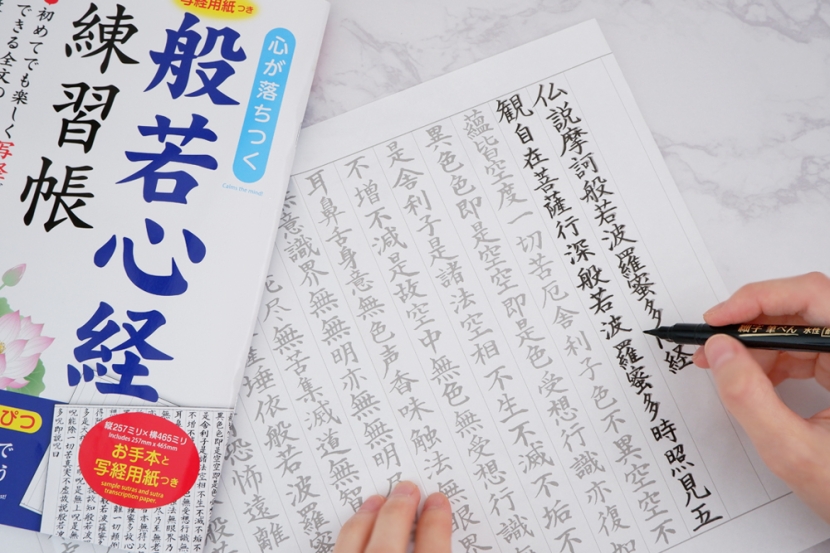 写経用紙つき
心が落ちつく
Calms the mind!
般若心経
練習帳
初めてでも楽しく写経
できる全文の
ぴつ
縦257ミリ×横465ミリ
Includes 257mm x 465mm
お手本と
写経用紙つき
sample sutras and sutra
transcription paper
仏説摩訶般若波羅蜜多経
観自在菩薩行深般若波羅蜜多時照見五
蘊皆空度一切苦厄舎利子色不異空空不
異色色即是空空即是色受想行識亦復如
是舎利子是諸法空相不生不滅不垢不
不増不減是故空中無色無受想行識
耳鼻舌身意無色声香味触法無眼界
無意識界無無明亦無無明尽
尽無苦集滅道無智
埵依般若波羅
恐怖遠離